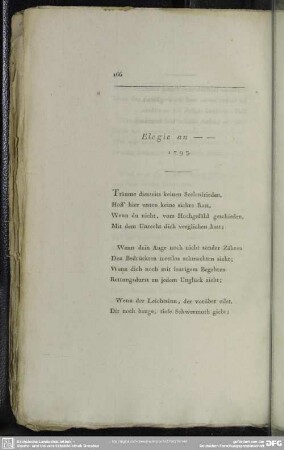 166
Elegie an — —
1793
Träume dennoch keinen Seelenfrieden,
Hoff' hier unten keine sichre Rast,
Wenn du nicht, vom Hochgefühl geschieden,
Mit dem Unrecht dich verglichen hast;
Wenn dein Auge noch mit zarter Zähren
Den Bedrückten trostlos schmachten sieht;
Wenn dich noch mit feurigem Begehren
Rettungsdurst zu jedem Unglück zieht;
Wenn der Leichtsinn, der vorüber eilet,
Dir noch bange, tiefe Schwermuth giebt;
DFG